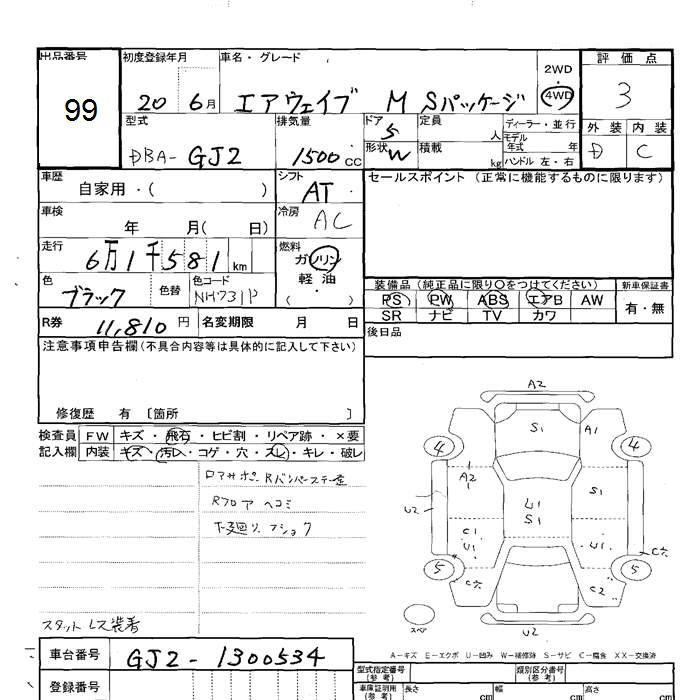 出品番号 初度登録年月 車名・グレード 2WD 評価点
99 20 6月 エアウェイブ M Sパッケージ ・ 4WD 3
型式 排気量 ドア 5 定員 人 ディーラー・並行 外装 内装
DBA- GJ2 1500cc 形状 W 積載 kg モデル年式 年 D C
ハンドル 左・右
車歴 自家用・( ) シフト AT セールスポイント(正常に機能するものに限ります)
車検 年 月( 日) 冷房 AC
走行 6万1千581km 燃料 ガソリン
色 ブラック 色替 色コード NH731P 軽・油
( ・ )
装備品(純正品に限り○をつけてください) 新車保証書
PS PW ABS エアB AW 有・無
SR ナビ TV カワ
R券 11,810円 名変期限 月 日 後日品
注意事項申告欄(不具合内容等は具体的に記入して下さい)
修復歴 有 〔箇所 〕
検査員 FW キズ・飛石・ヒビ割・リペア跡・×要
記入欄 内装 キズ・汚レ・コゲ・穴・スレ・キレ・破レ
Rフロア ヘコミ
下廻り フショク
スタットレス装着
A2
S1 A1
4 4
A2 S1
U1
S1
U2
C1
U1 U1 C穴
5 5
C穴 C2
スペ U2
A-キズ E-エクボ U-凹み W-補修跡 S-サビ C-腐食 XX-交換済
車台番号 GJ2-1300534
登録番号
型式指定番号(参考) 類別区分番号(参考)
車庫証明用(参考) 長さ cm 幅 cm 高さ cm